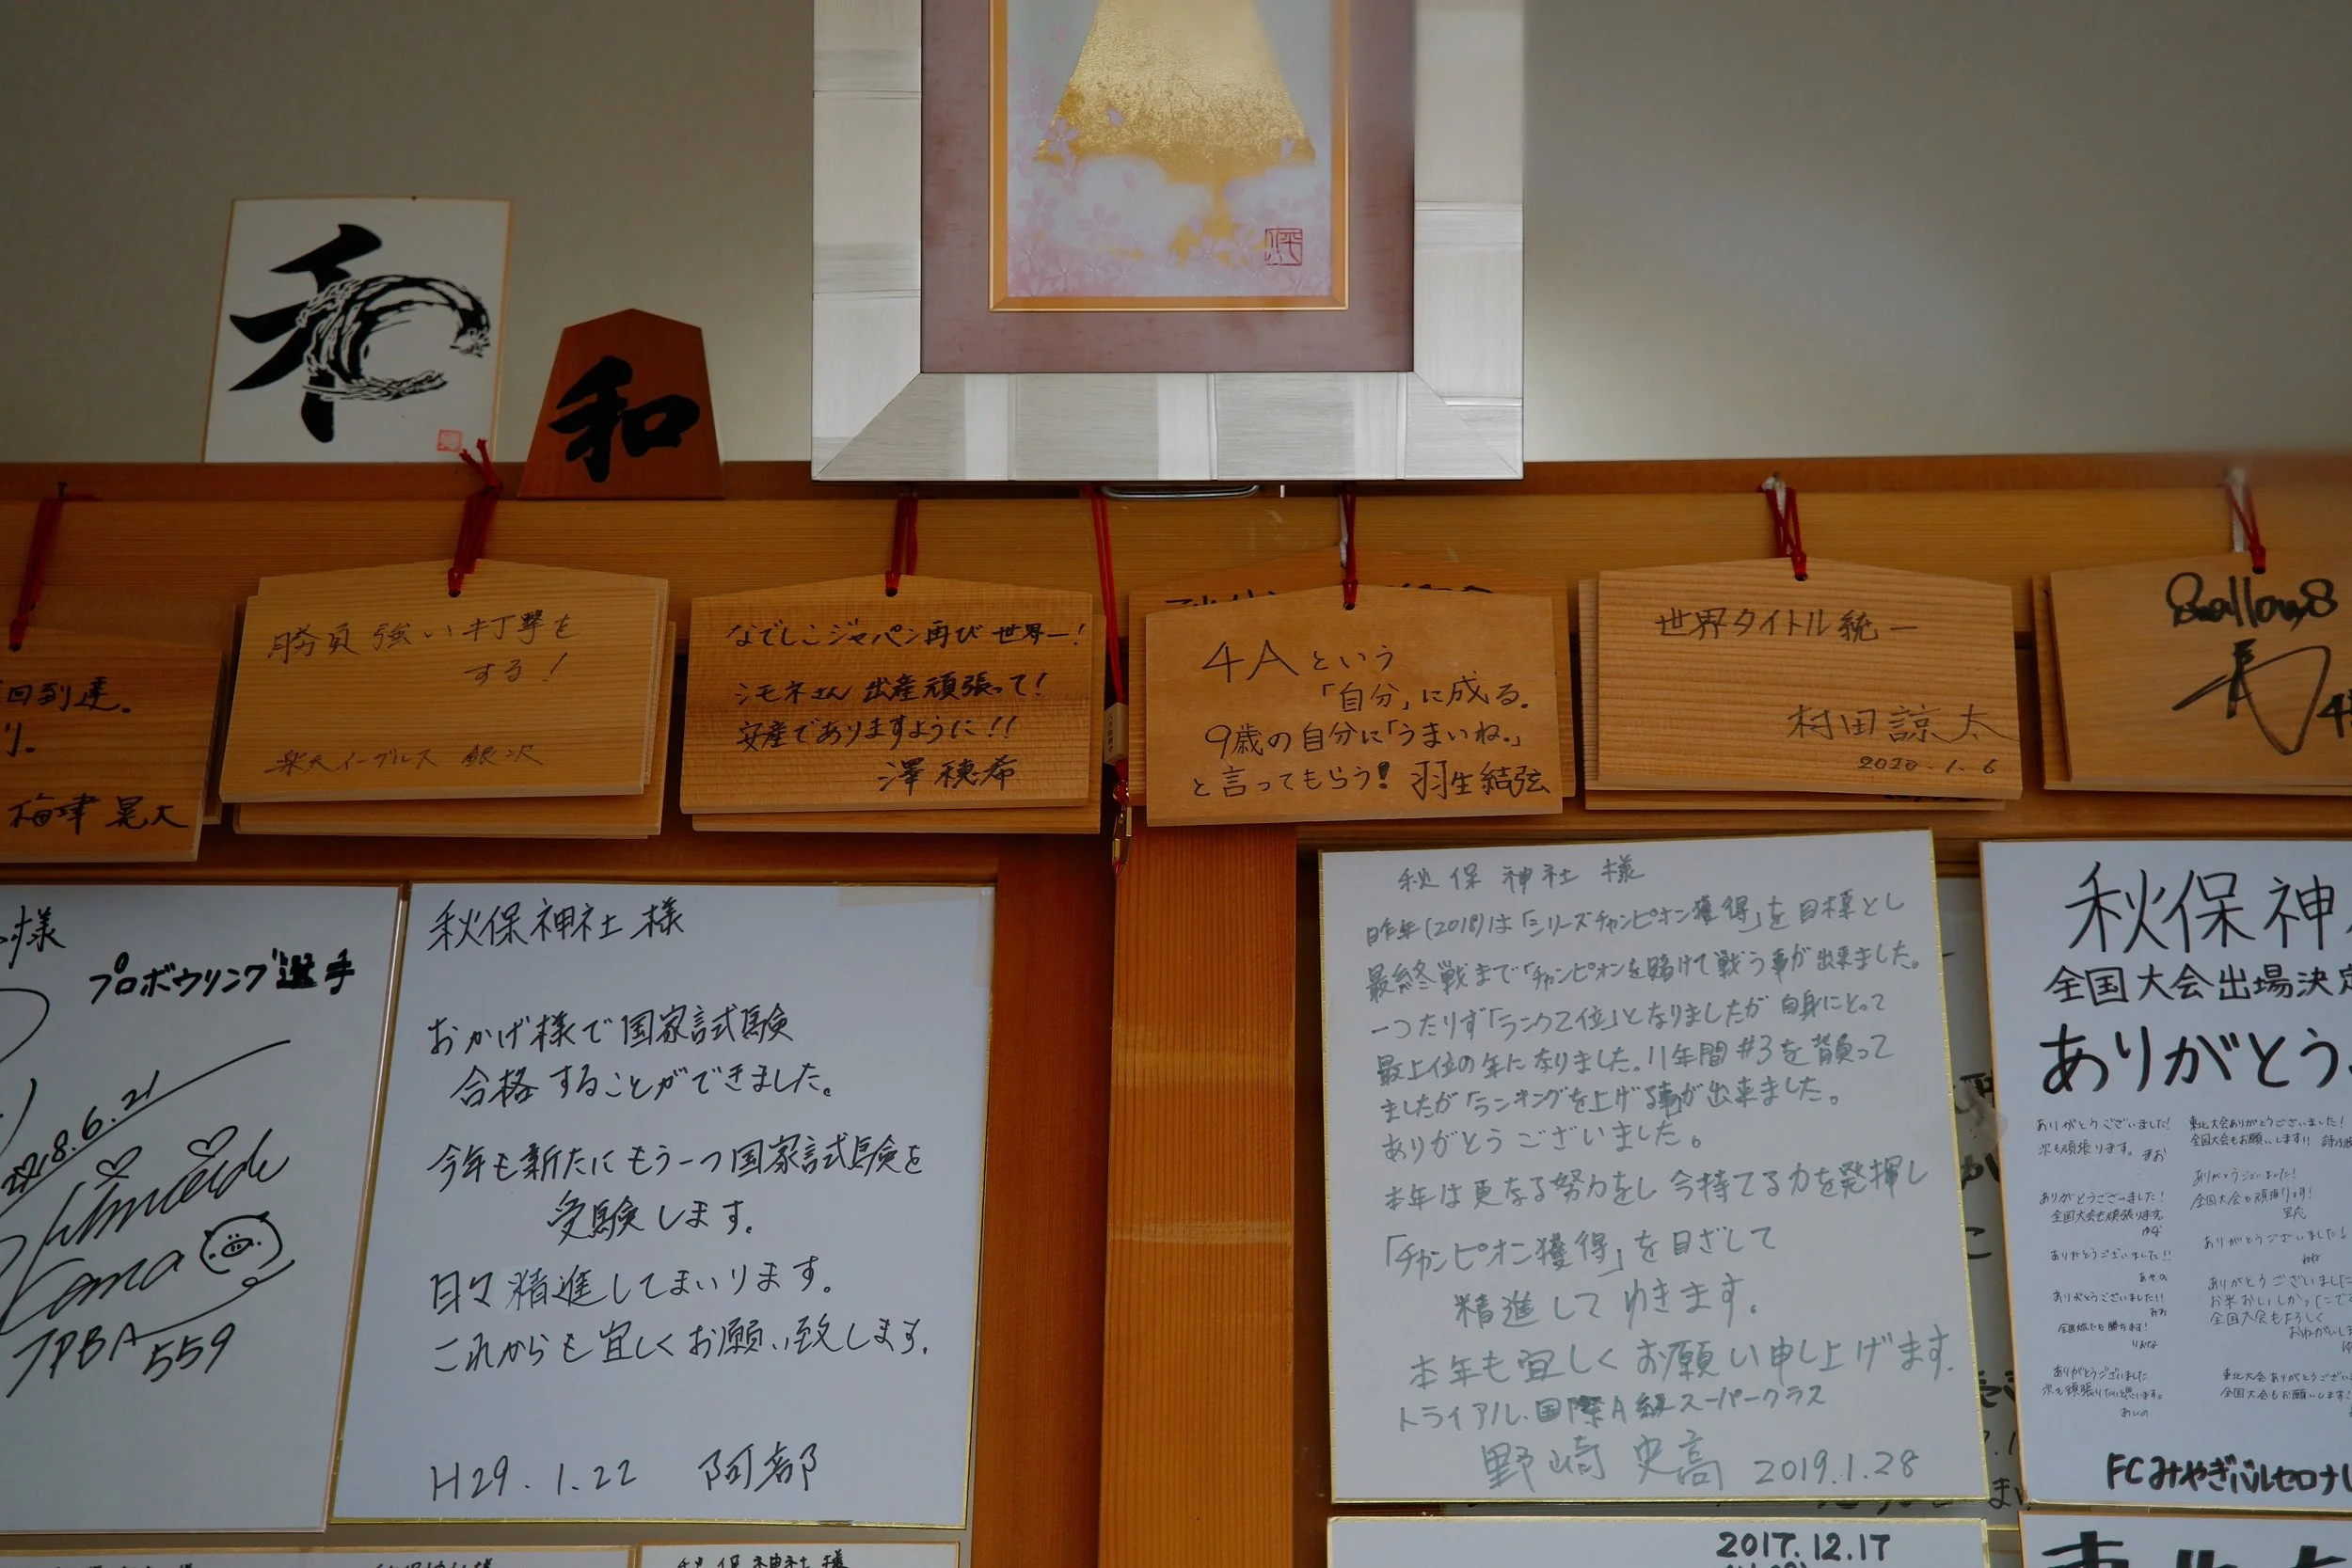 和
和
回到達。
梅津 晃大
勝負強い打撃を
する!
楽天イーグルス 銀次
なでしこジャパン再び世界一!
シモネさん 出産頑張って!
安産でありますように!!
澤 穂希
4Aという
「自分」に成る。
9歳の自分に「うまいね。」
と言ってもらう! 羽生結弦
世界タイトル統一
村田諒太
2020.1.6
Swallows
様
プロボウリング選手
2018.6.21
Kana
JPBA 559
秋保神社 様
おかげ様で国家試験
合格することができました。
今年も新たにもう一つ国家試験を
受験します。
日々精進してまいります。
これからも宜しくお願い致します。
H29.1.22 阿部
秋保神社 様
昨年(2018)は「シリーズチャンピオン獲得」を目標とし
最終戦まで「チャンピオンを賭けて戦う事が出来ました。
一つたりず「ランク2位」となりましたが 自身にとって
最上位の年になりました。11年間 #3を背負って
ましたが「ランキングを上げる事が出来ました。
ありがとうございました。
本年は更なる努力をし 今持てる力を発揮し
「チャンピオン獲得」を目ざして
精進してゆきます。
本年も宜しくお願い申し上げます。
トライアル.国際A級スーパークラス
野崎 史高 2019.1.28
秋保神
全国大会出場決定
ありがとう
ありがとうございました!
次も頑張ります。 まお
ありがとうございました!
全国大会も頑張ります。
ありがとうございました!!
ありがとうございました!!
ありがとうございました
東北大会ありがとうございました!
全国大会もお願いします!!
ありがとうございました!
全国大会も頑張ります!
ありがとうございました
全国大会もよろしく
東北大会ありがとうござい
全国大会もお願いします
FCみやぎバルセロナ
秋保神社 様
2017.12.17